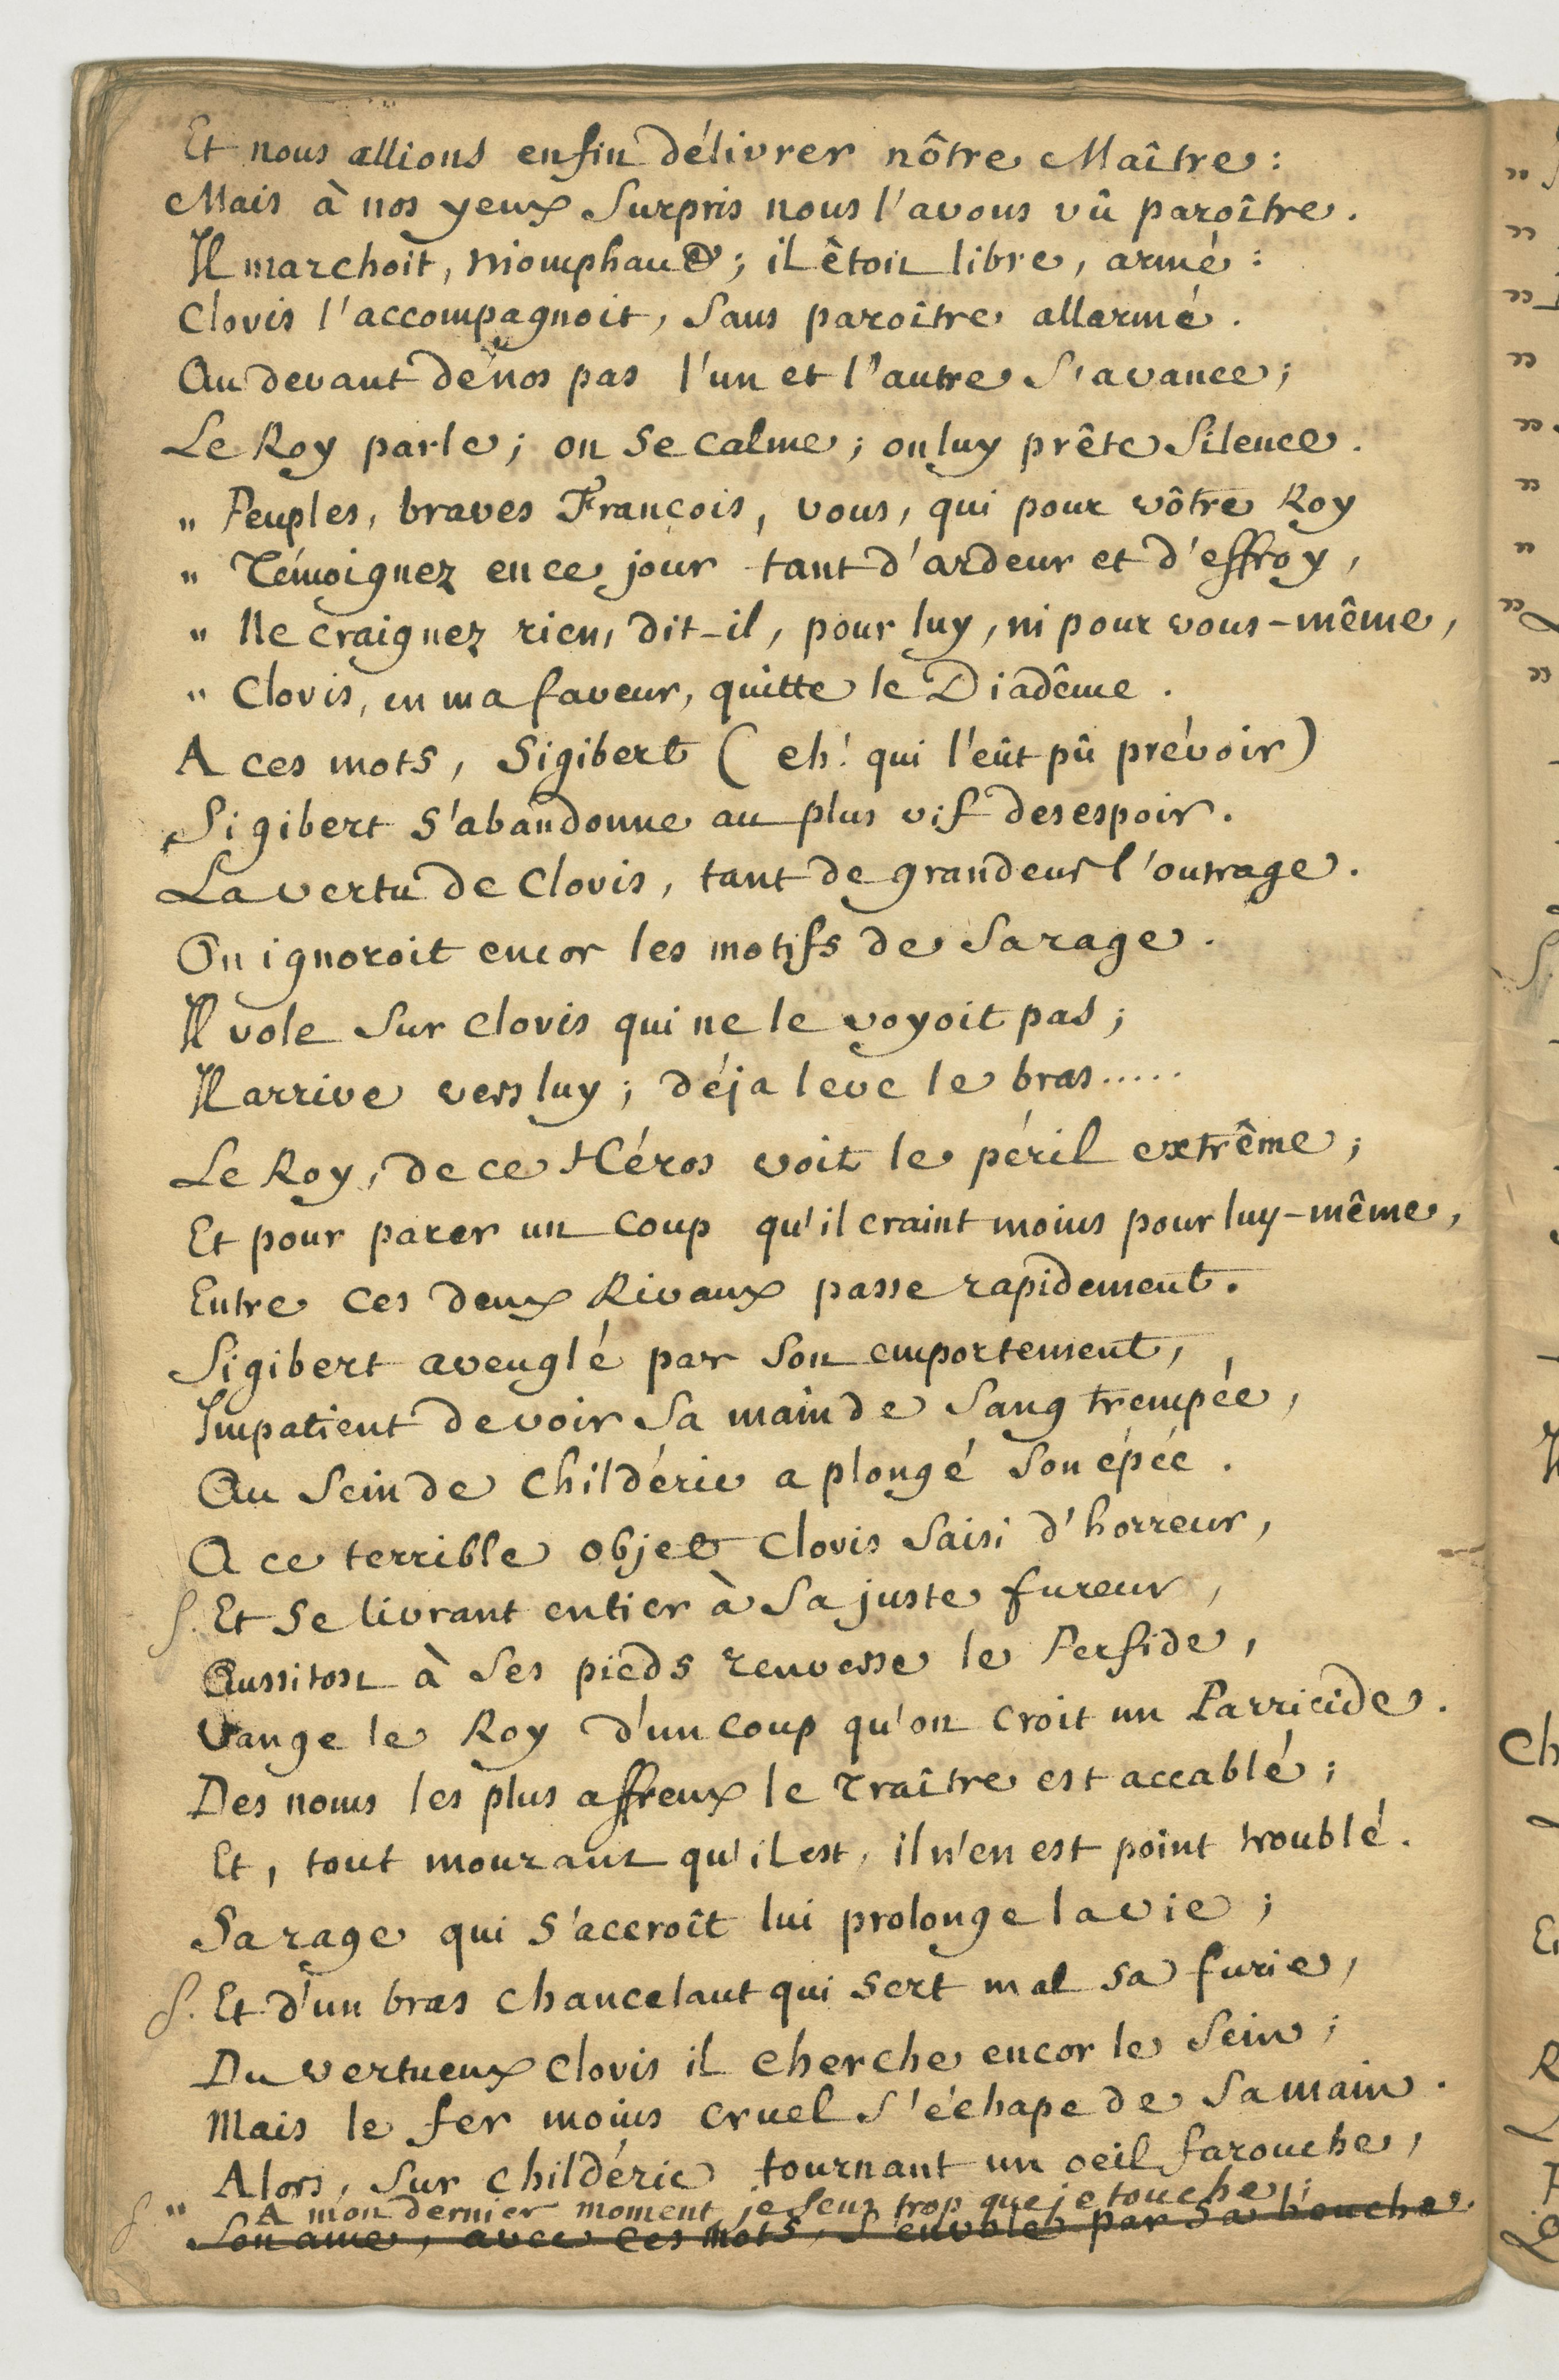 Et nous allions enfin délivrer nôtre Maître :
Mais à nos yeux surpris nous l'avons vû paroître.
Il marchoit, triomphant ; il étoit libre, armé :
Clovis l'accompagnoit, sans paroître allarmé.
Au devant de nos pas l'un et l'autre s'avance ;
Le Roy parle ; on se calme ; on luy prête silence.
" Peuples, braves François, vous, qui pour vôtre Roy
" Témoignez en ce jour tant d'ardeur et d'effroy,
" Ne craignez rien, dit-il, pour luy, ni pour vous-même,
" Clovis, en ma faveur, quitte le Diadême.
A ces mots, Sigibert ( eh ! qui l'eût pû prévoir)
Sigibert s'abandonne au plus vif desespoir.
La vertu de Clovis, tant de grandeur l'outrage.
On ignoroit encor les motifs de sa rage.
Il vole sur Clovis qui ne le voyoit pas ;
Il arrive vers luy ; déja leve le bras.....
Le Roy, de ce Héros voit le péril extrême ;
Et pour parer un coup qu'il craint moins pour luy-même,
Entre ces deux Rivaux passe rapidement.
Sigibert aveuglé par son emportement,
Impatient de voir sa main de sang trempée,
Au sein de Childéric a plongé son épée.
A ce terrible objet Clovis saisi d'horreur,
f. Et se livrant entier à sa juste fureur,
Aussitost à ses pieds renverse le Perfide,
Vange le Roy d'un coup qu'on croit un Parricide.
Des noms les plus affreux le Traître est accablé ;
Et, tout mourant qu'il est, il n'en est point troublé.
Sa rage qui s'accroît lui prolonge la vie ;
f. Et d'un bras chancelant qui sert mal sa furie,
Du vertueux Clovis il cherche encor le sein ;
Mais le fer moins cruel s'échape de sa main.
Alors, sur Childéric tournant un oeil farouche,
f. " A mon dernier moment, je sens trop que je touche ;
Son ame, avec ces mots, s'envole par sa bouche.